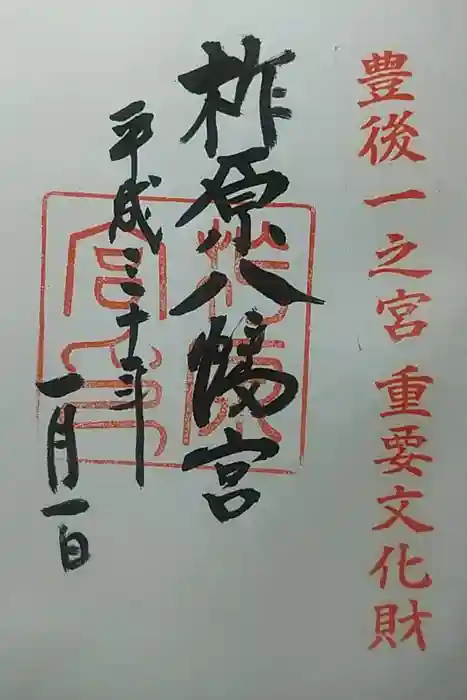 豊後一之宮 重要文化財
柞原八幡宮
平成三十年
一月一日